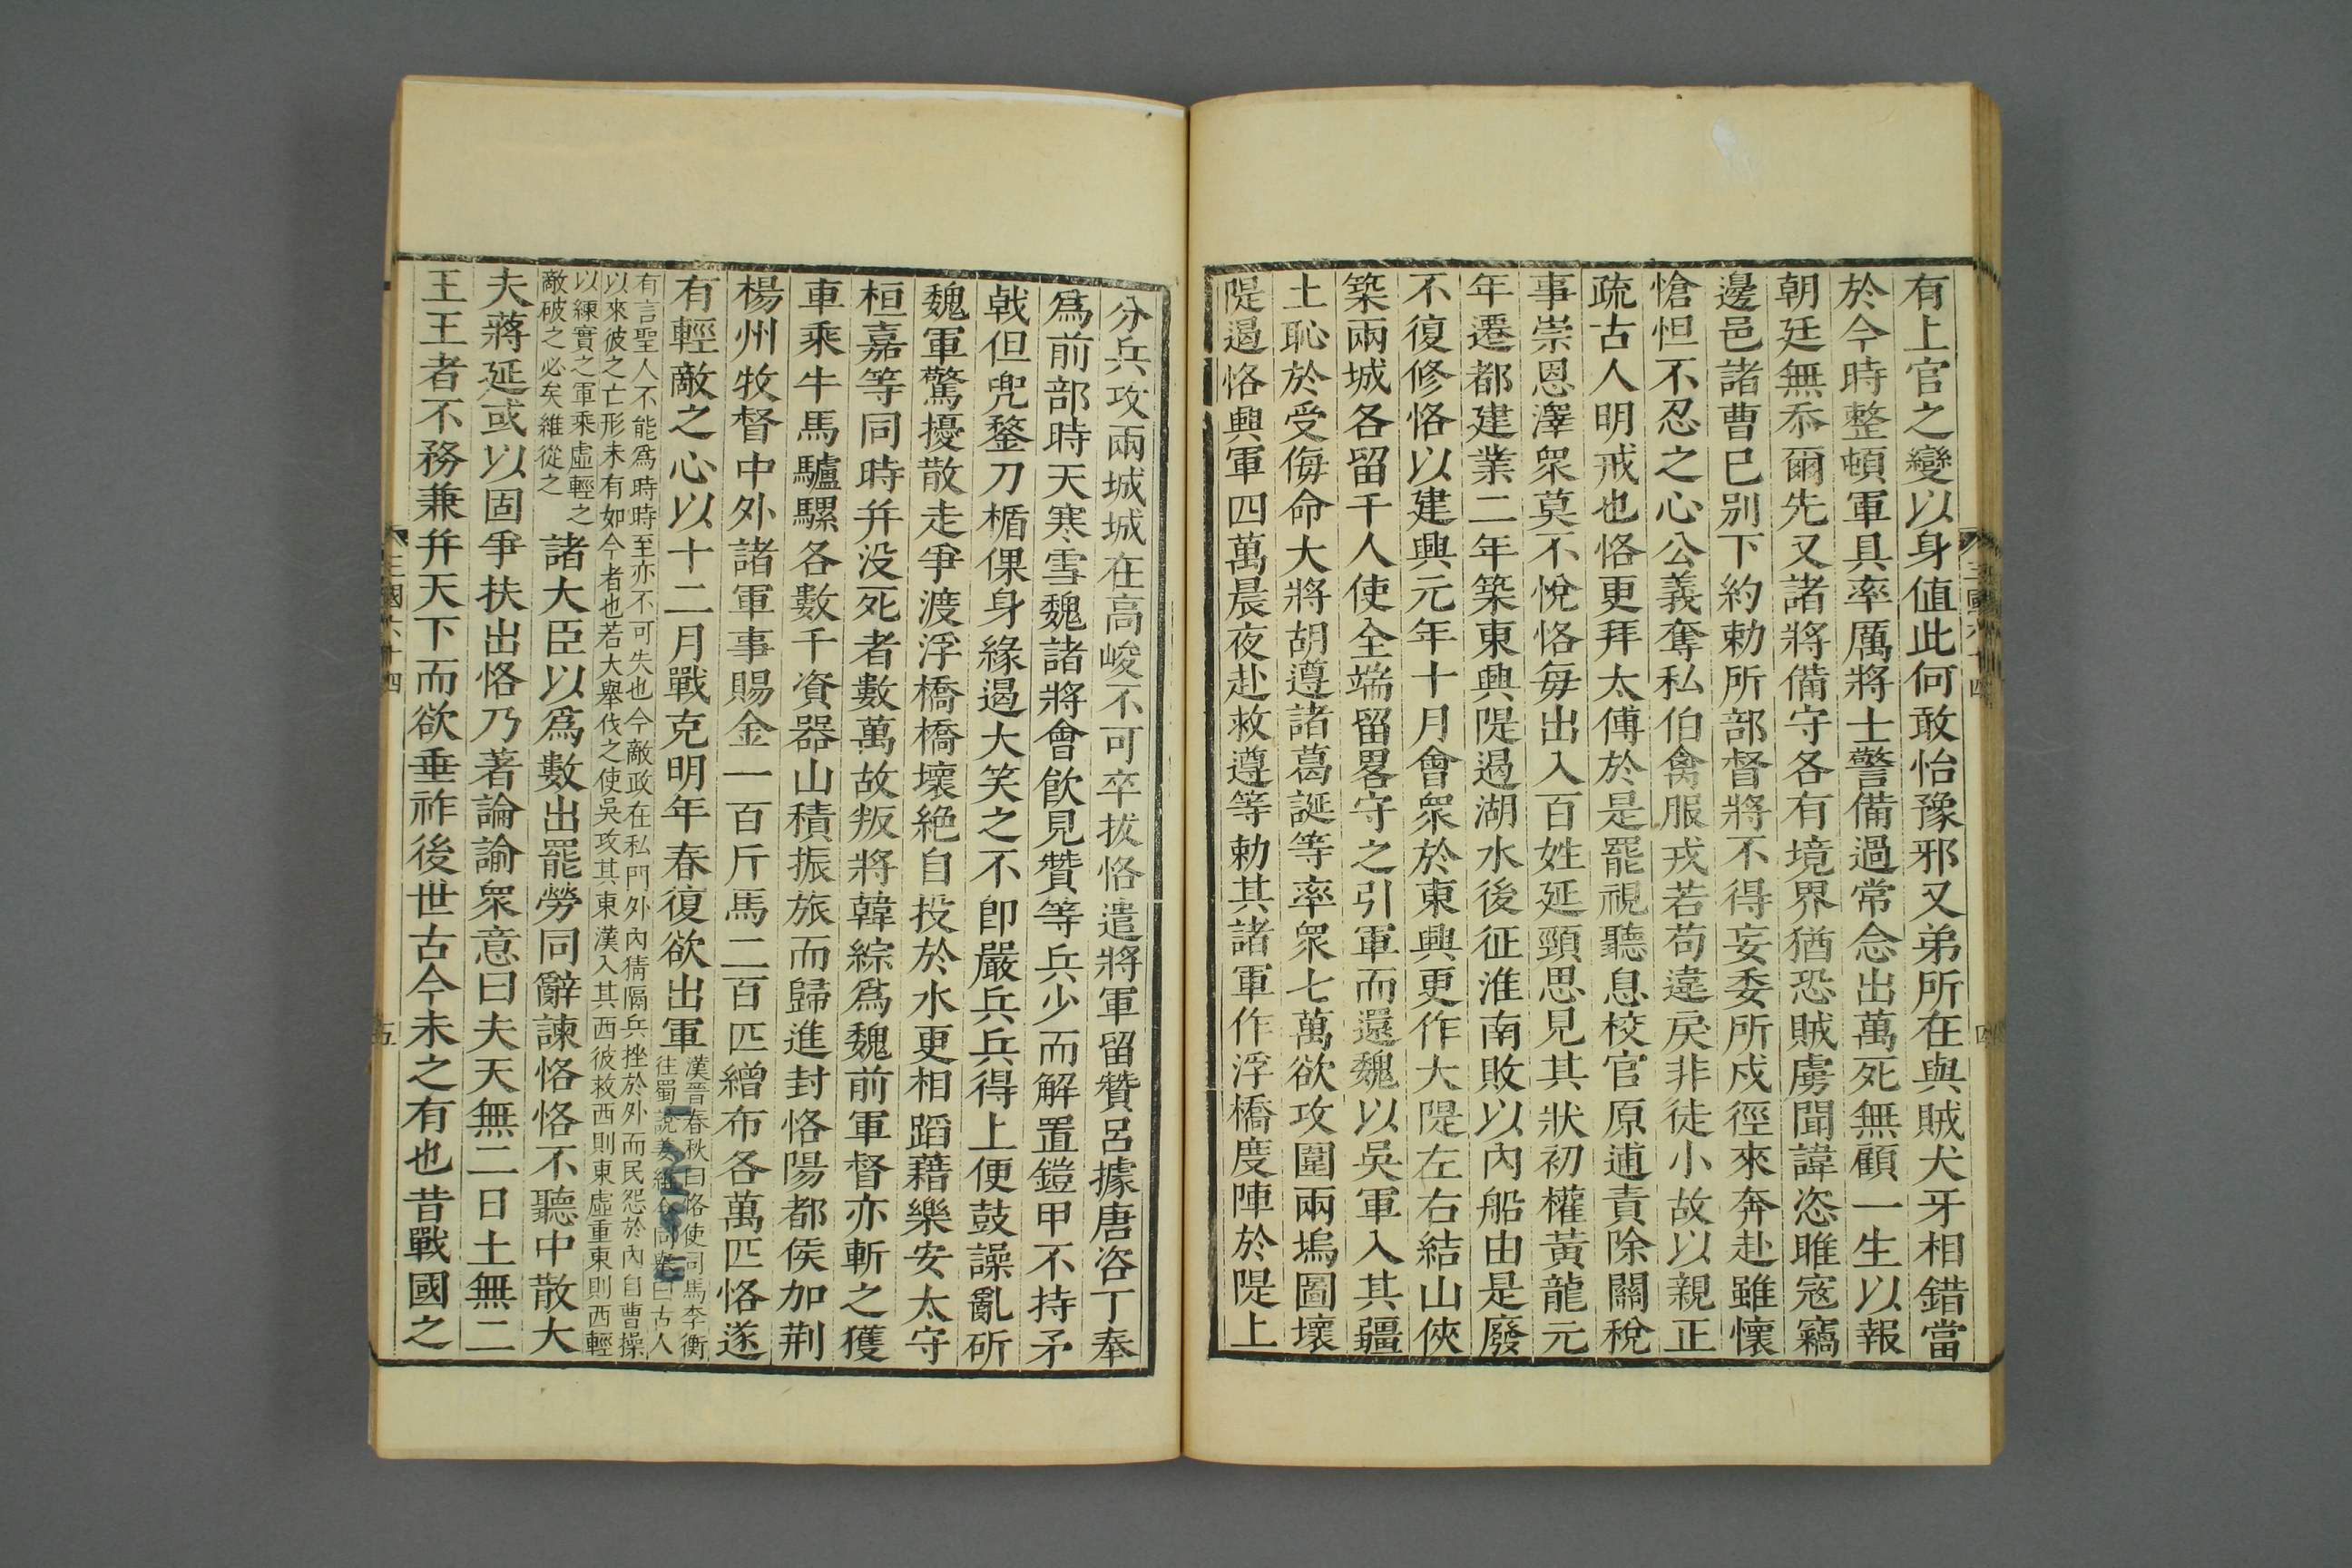 有上官之變以身值此何敢怡豫邪又弟所在與賊犬牙相錯當
於今時整頓軍具率厲將士警備過常念出萬死無顧一生以報
朝廷無忝爾先又諸將備守各有境界猶恐賊虜聞諱恣睢寇竊
邊邑諸曹已別下約勅所部督將不得妄委所戍徑來奔赴雖懷
愴怛不忍之心公義奪私伯禽服戎若苟違戾非徒小故以親正
疏古人明戒也恪更拜太傅於是罷視聽息校官原逋責除關稅
事崇恩澤衆莫不悅恪每出入百姓延頸思見其狀初權黃龍元
年遷都建業二年築東興隄遏湖水後征淮南敗以內船由是廢
不復修恪以建興元年十月會衆於東興更作大隄左右結山俠
築兩城各留千人使全端留畧守之引軍而還魏以吳軍入其疆
土恥於受侮命大將胡遵諸葛誕等率衆七萬欲攻圍兩塢圖壞
隄遏恪興軍四萬晨夜赴救遵等勅其諸軍作浮橋度陣於隄上
分兵攻兩城城在高峻不可卒拔恪遣將軍留贊呂據唐咨丁奉
爲前部時天寒雪魏諸將會飲見贊等兵少而解置鎧甲不持矛
戟但兜鍪刀楯倮身緣遏大笑之不卽嚴兵兵得上便鼓譟亂斫
魏軍驚擾散走爭渡浮橋橋壞絶自投於水更相蹈藉樂安太守
桓嘉等同時幷没死者數萬故叛將韓綜爲魏前軍督亦斬之獲
車乘牛馬驢騾各數千資器山積振旅而歸進封恪陽都侯加荆
楊州牧督中外諸軍事賜金一百斤馬二百匹繒布各萬匹恪遂
有輕敵之心以十二月戰克明年春復欲出軍
漢晉春秋曰恪使司馬李衡
往蜀說姜維令同舉曰古人
有言聖人不能爲時時至亦不可失也今敵政在私門外內猜隔兵挫於外而民怨於內自曹操
以來彼之亡形未有如今者也若大舉伐之使吳攻其東漢入其西彼救西則東虛重東則西輕
以練實之軍乘虛輕之
敵破之必矣維從之
諸大臣以爲數出罷勞同辭諫恪恪不聽中散大
夫蔣延或以固爭扶出恪乃著論諭衆意曰夫天無二日土無二
王王者不務兼幷天下而欲垂祚後世古今未之有也昔戰國之
三國六十四
五